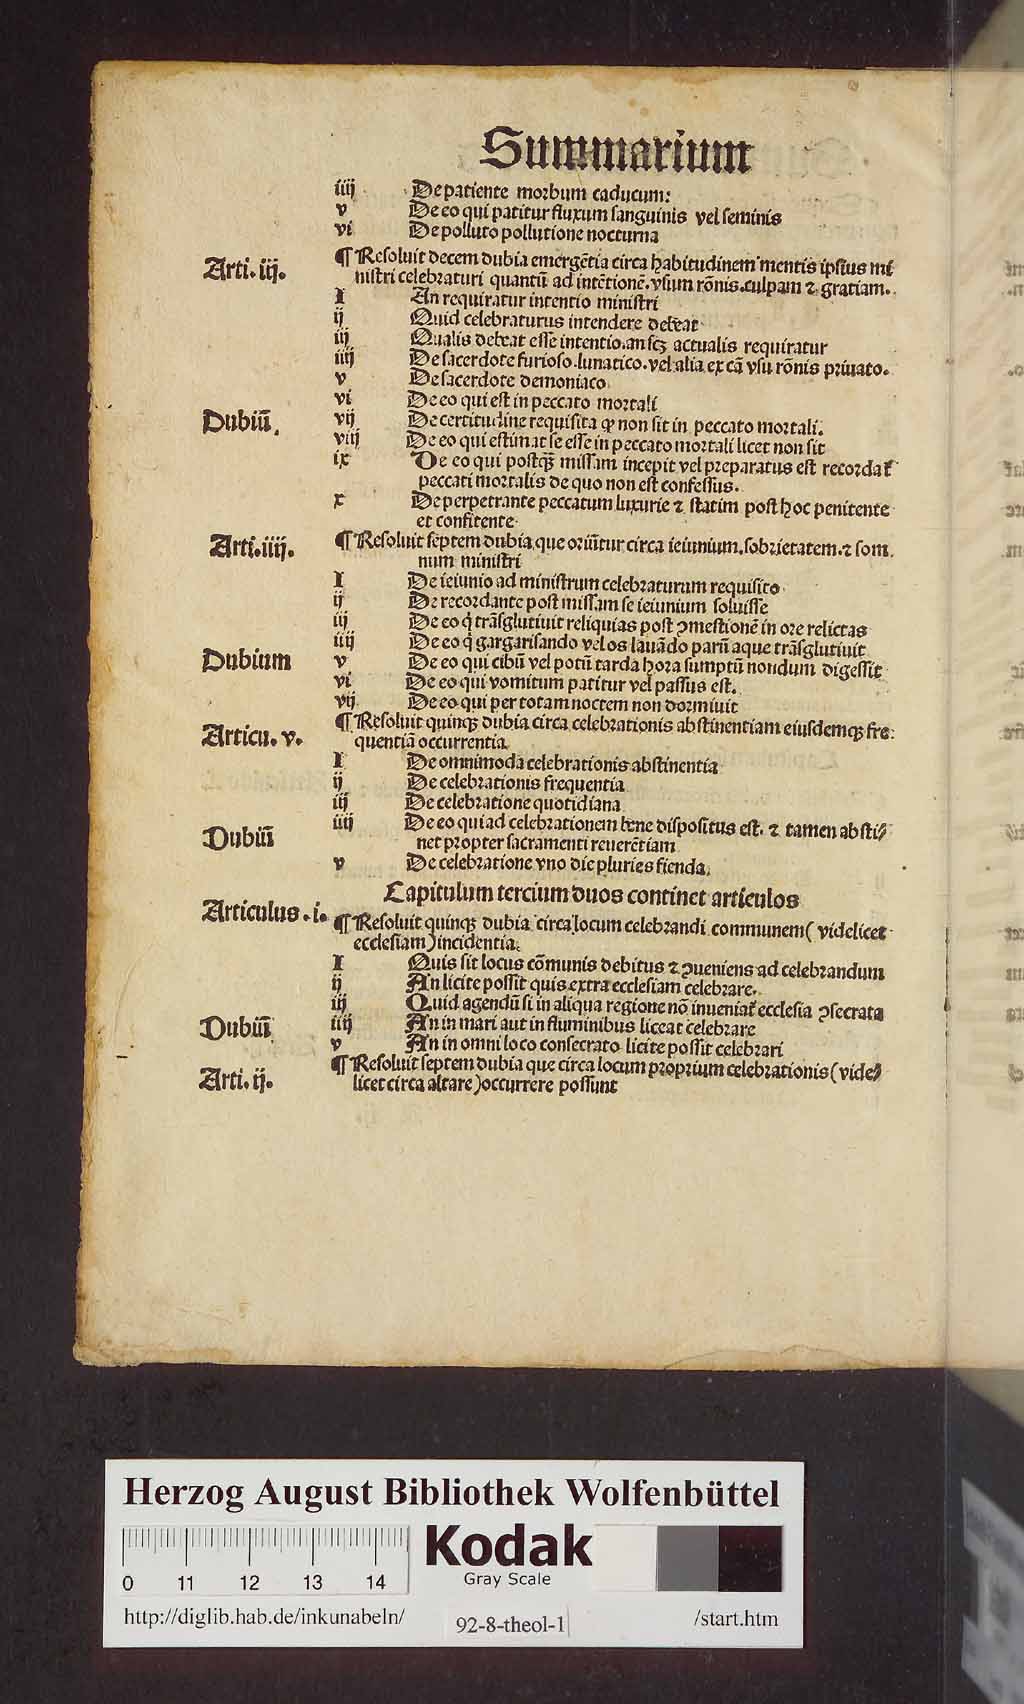 Summarium
iiij De patiente morbum caducum:
v De eo qui patitur fluxum sanguinis vel seminis
vi De polluto pollutione nocturna
Arti. iij. ¶ Resoluit decem dubia emergẽtia circa habitudinem mentis ipsius mi
nistri celebraturi quantũ ad intẽtionẽ. vsum rõnis. culpam ⁊ gratiam.
I An requiratur intentio ministri
ij Quid celebraturus intendere debeat
iij Qualis debeat esse intentio. an scꝫ actualis requiratur
iiij De sacerdote furioso. lunatico. vel alia ex cã vsu rõnis priuato.
v De sacerdote demoniaco
vi De eo qui est in peccato mortali
Dubiũ. vij De certitudine requisita ꝙ non sit in peccato mortali.
viij De eo qui estimat se esse in peccato mortali licet non sit
ix De eo qui postqꝫ missam incepit vel preparatus est recordat̃
peccati mortalis de quo non est confessus.
x De perpetrante peccatum luxurie ⁊ statim post hoc penitente
et confitente
Arti. iiij. ¶ Resoluit septem dubia que oriũtur circa ieiunium. sobrietatem. ⁊ som
num ministri
I De ieiunio ad ministrum celebraturum requisito
ij De recordante post missam se ieiunium soluisse
iij De eo q̇ trãsglutiuit reliquias post ꝯmestionẽ in ore relictas
iiij De eo q̇ gargarisando vel os lauãdo parũ aque trãsglutiuit
Dubium v De eo qui cibũ vel potũ tarda hora sumptũ nondum digessit
vi De eo qui vomitum patitur vel passus est.
vij De eo qui per totam noctem non dormiuit
Articu. v. ¶ Resoluit quinqꝫ dubia circa celebrationis abstinentiam eiusdemqꝫ fre:
quentiã occurrentia
I De omnimoda celebrationis abstinentia
ij De celebrationis frequentia
iij De celebratione quotidiana
Dubiũ iiij De eo qui ad celebrationem bene dispositus est. ⁊ tamen absti⸗
net propter sacramenti reuerẽtiam
v De celebratione vno die pluries fienda.
Capitulum tercium duos continet articulos
Articulus. i. ¶ Resoluit quinqꝫ dubia circa locum celebrandi communem (videlicet
ecclesiam) incidentia.
I Quis sit locus cõmunis debitus ⁊ ꝯueniens ad celebrandum
ij An licite possit quis extra ecclesiam celebrare.
iij Quid agendũ si in aliqua regione nõ inueniat̃ ecclesia ꝯsecrata
Dubiũ iiij An in mari aut in fluminibus liceat celebrare
v An in omni loco consecrato licite possit celebrari
Arti. ij. ¶ Resoluit septem dubia que circa locum proprium celebrationis (vide⸗
licet circa altare) occurrere possunt
Herzog August Bibliothek Wolfenbüttel
Kodak
Gray Scale
0 11 12 13 14
http://diglib.hab.de/inkunabeln/ 92-8-theol-1 /start.htm